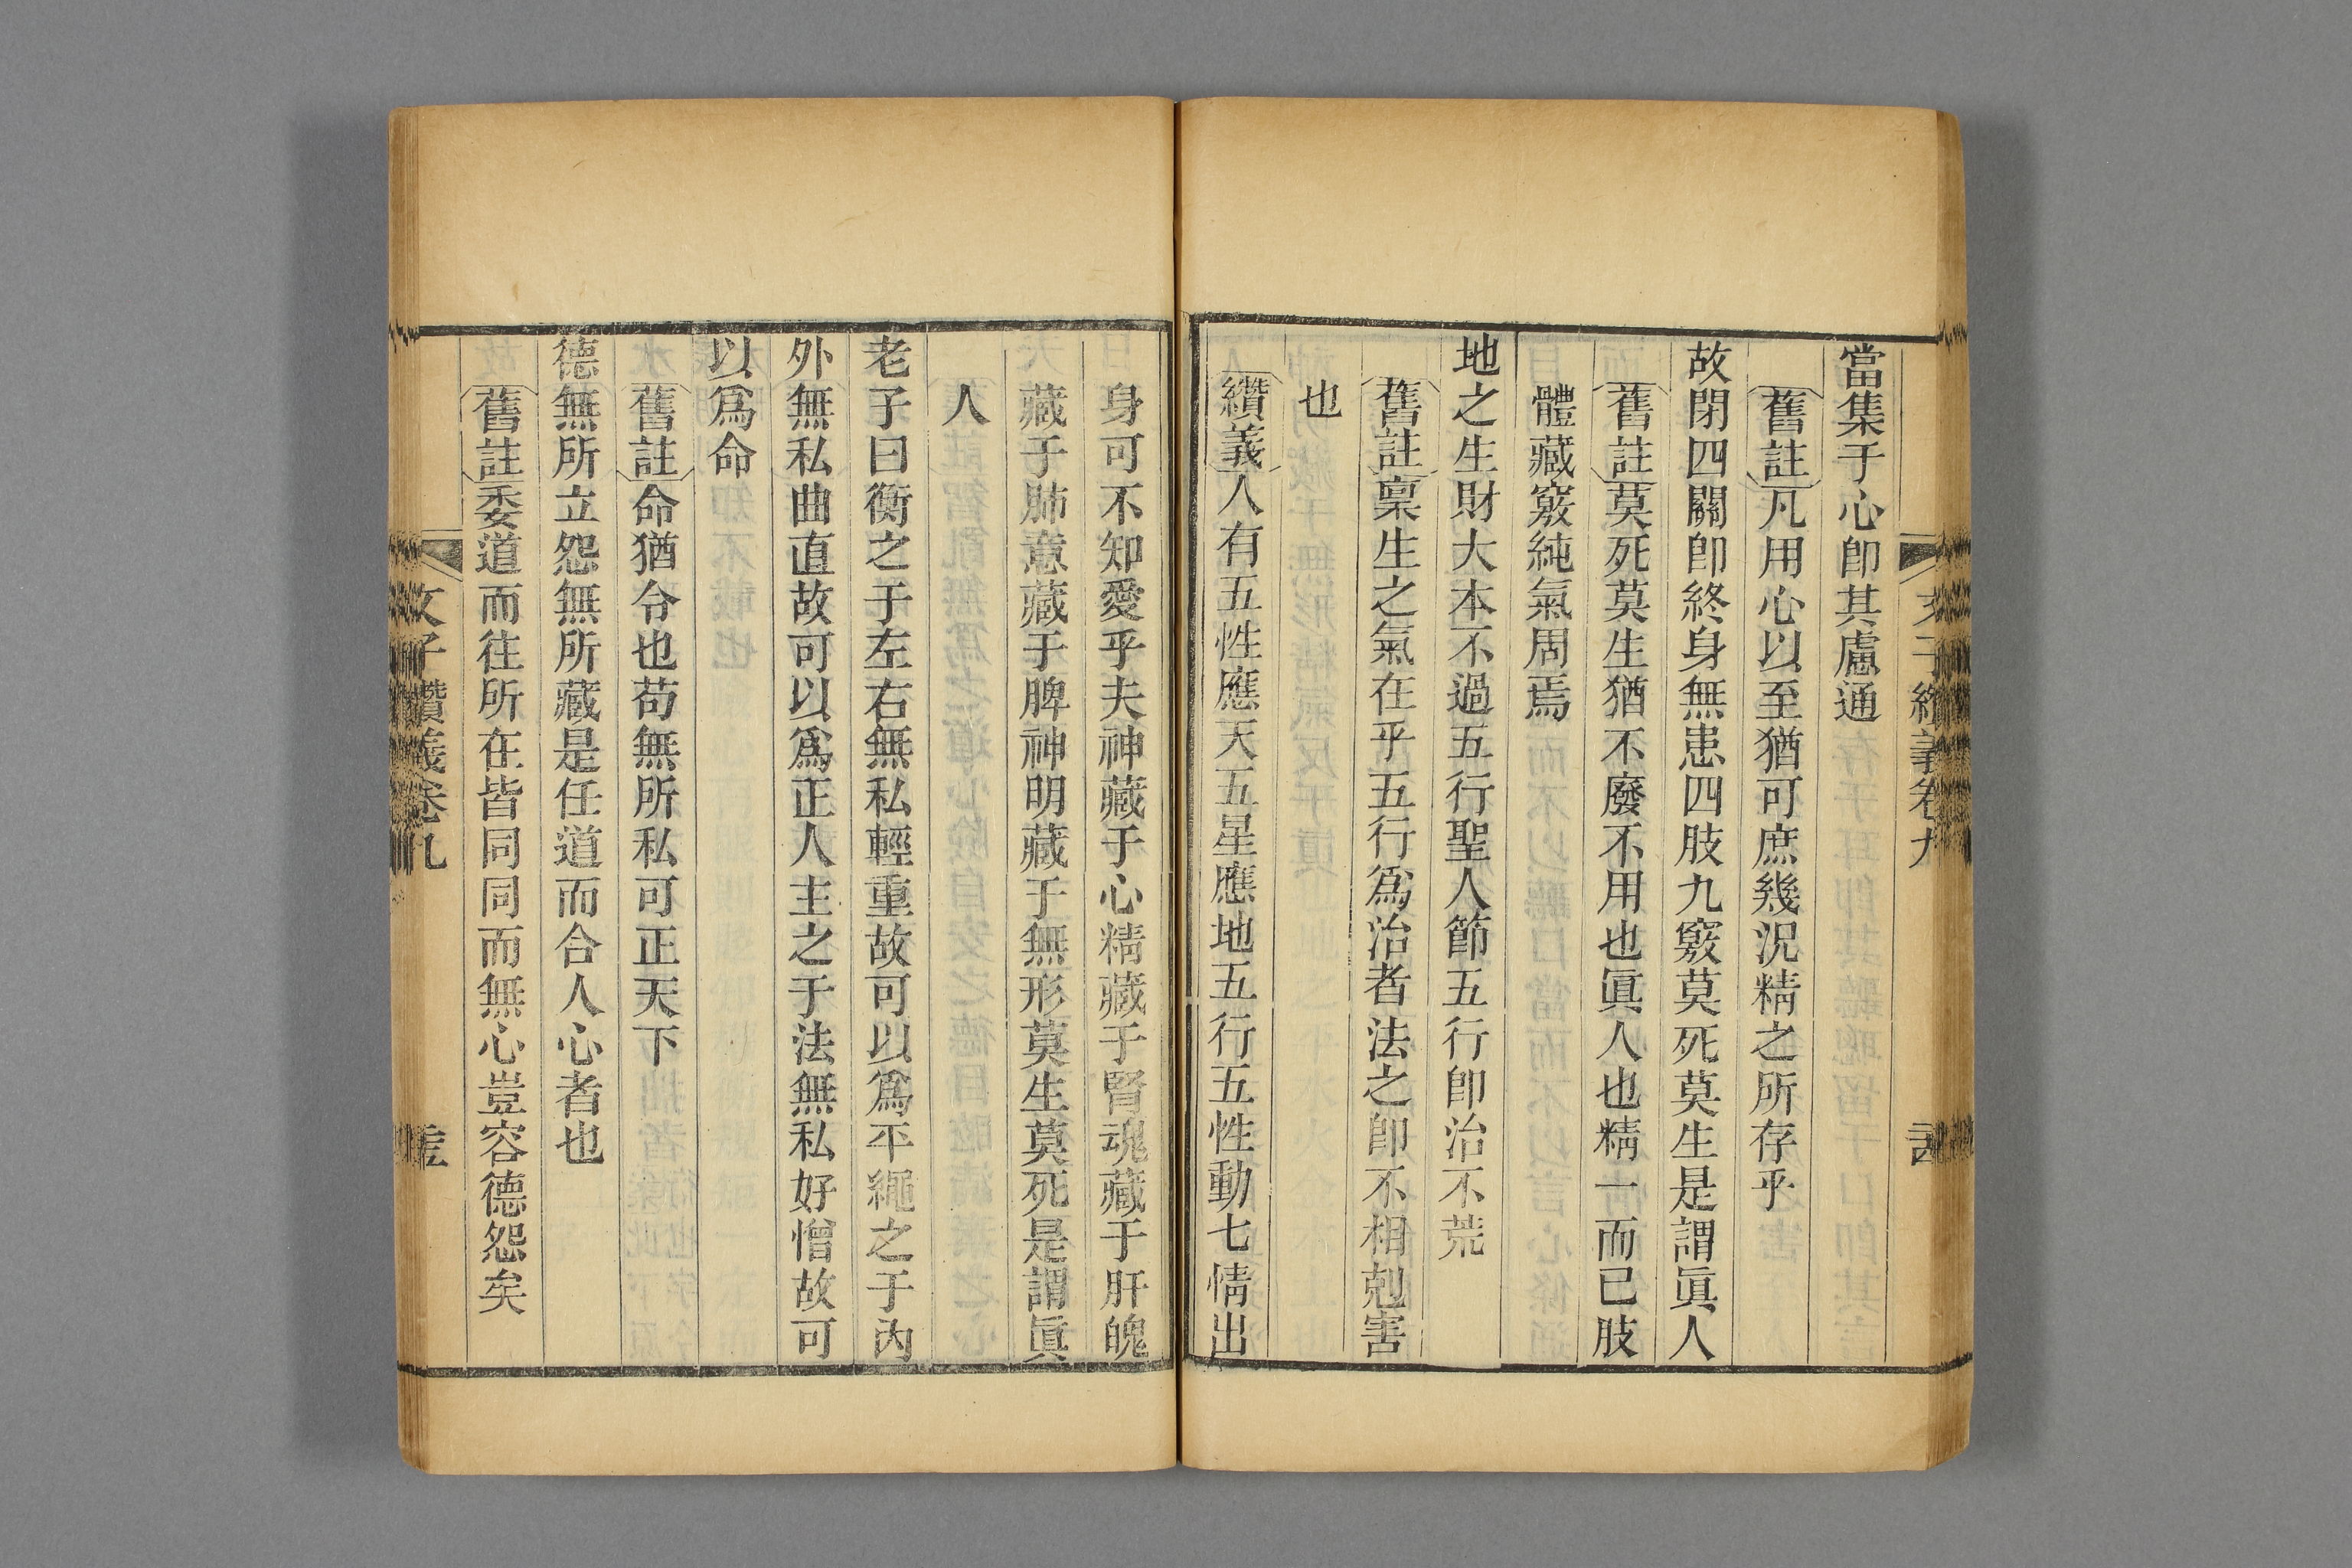 文子纘義卷九
當集于心卽其慮通
舊註凡用心以至猶可庶幾況精之所存乎
故閉四關卽終身無患四肢九竅莫死莫生是謂眞人
舊註莫死莫生猶不廢不用也眞人也精一而已肢
體藏竅純氣周焉
地之生財大本不過五行聖人節五行卽治不荒
舊註稟生之氣在乎五行爲治者法之卽不相剋害
也
纘義人有五性應天五星應地五行五性動七情出
身可不知愛乎夫神藏于心精藏于腎魂藏于肝魄
藏于肺意藏于脾神明藏于無形莫生莫死是謂眞
人
老子曰衡之于左右無私輕重故可以爲平繩之于內
外無私曲直故可以爲正人主之于法無私好憎故可
以爲命
舊註命猶令也苟無所私可正天下
德無所立怨無所藏是任道而合人心者也
舊註委道而往所在皆同同而無心豈容德怨矣
文子纘義卷九